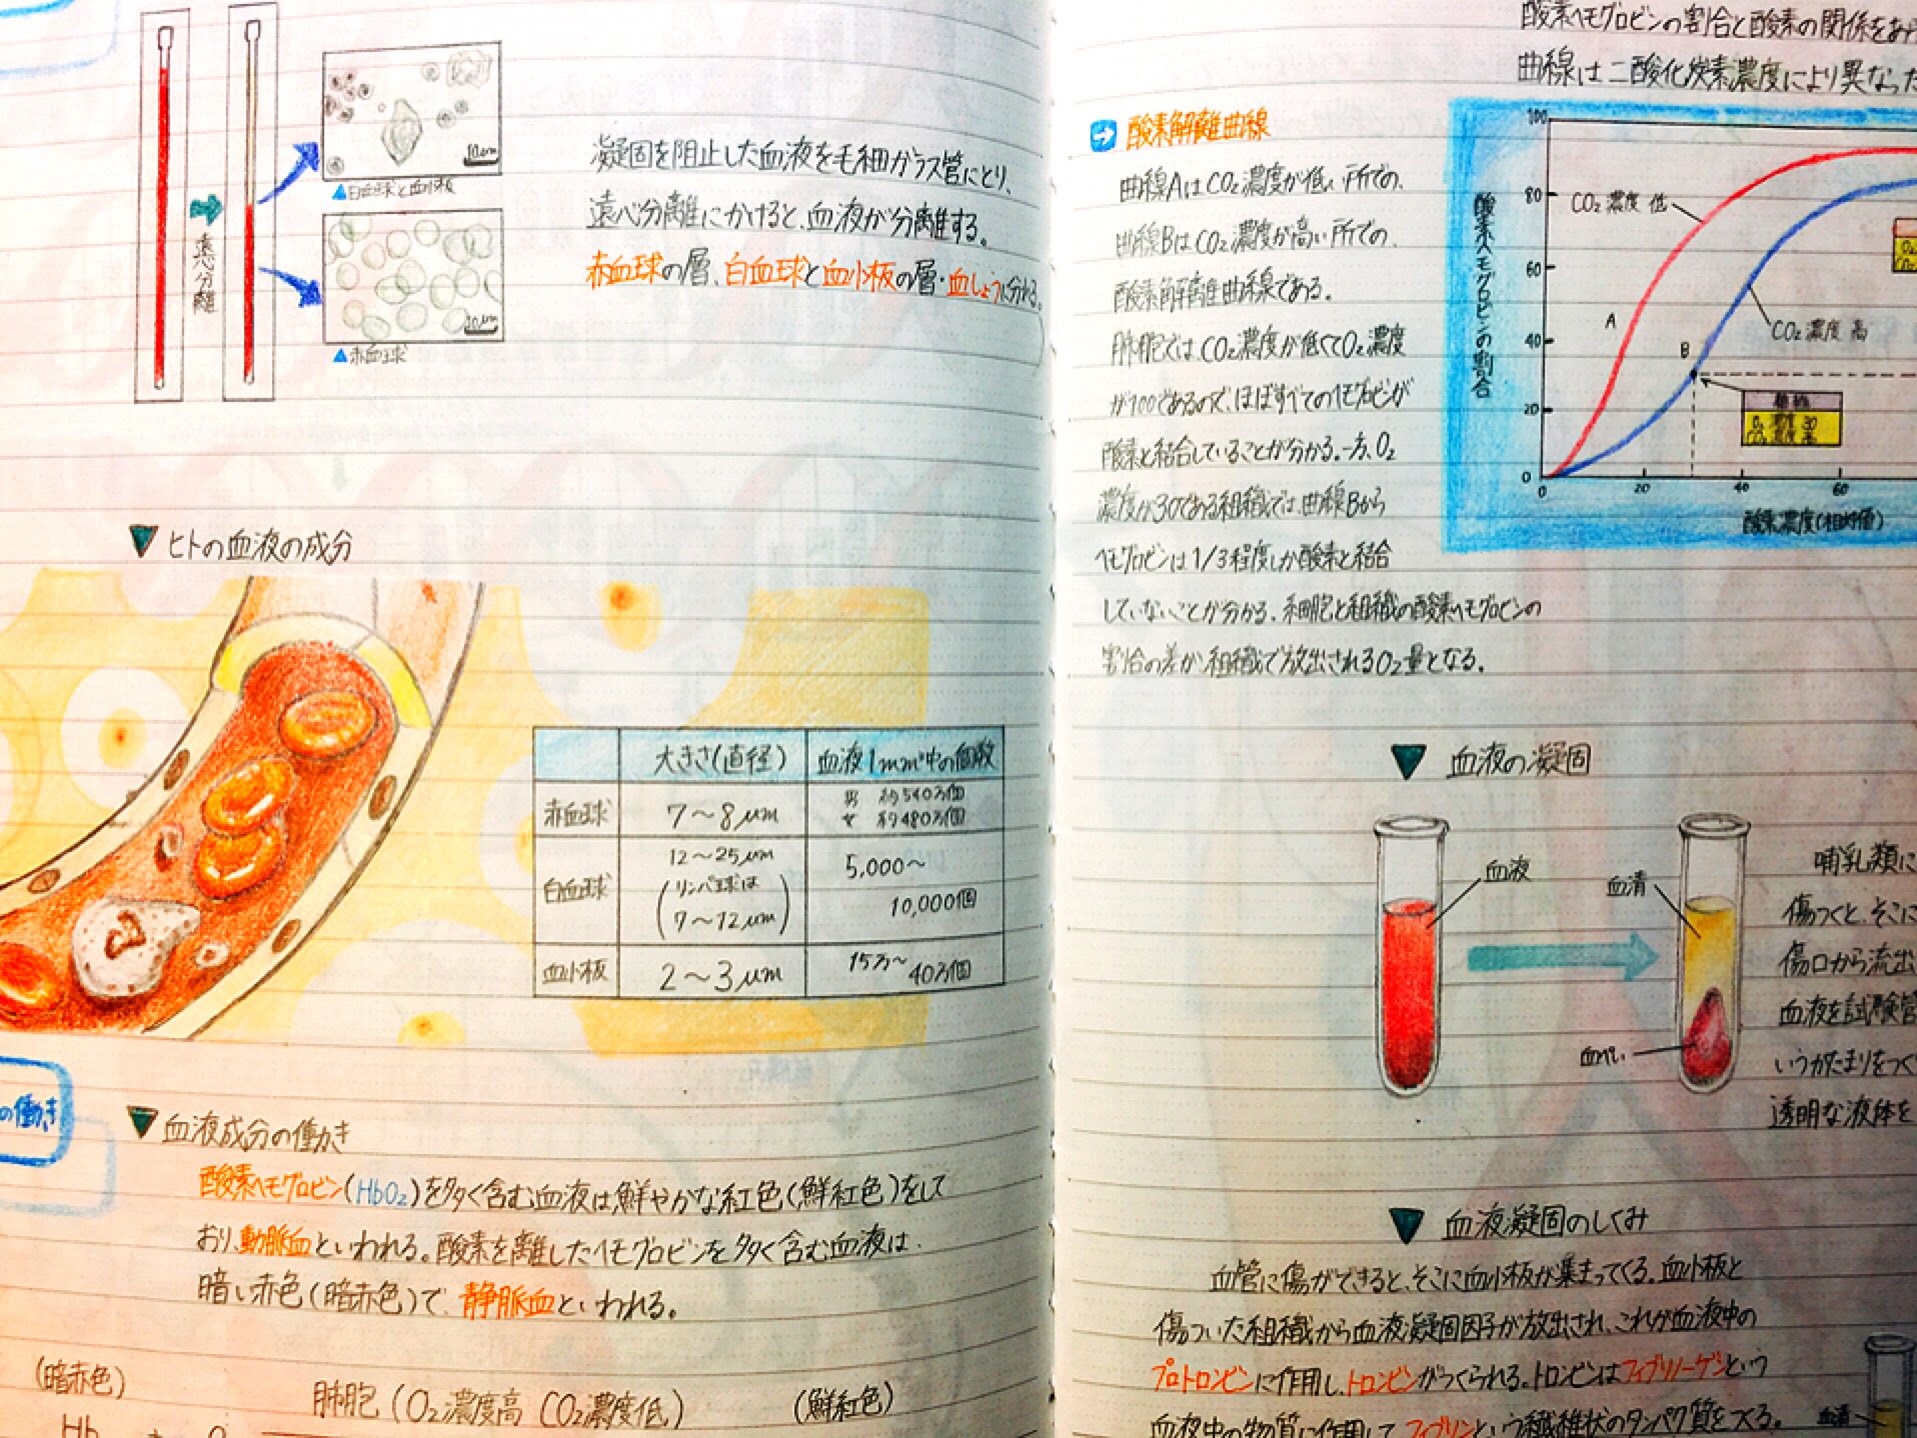 遠心分離
10μm
▲白血球と血小板
10μm
▲赤血球
凝固を阻止した血液を毛細ガラス管にとり、
遠心分離にかけると、血液が分離する。
赤血球の層、白血球と血小板の層・血しょうに分れる。
▼ ヒトの血液の成分
大きさ(直径) 血液1mm³中の個数
赤血球 7〜8μm 男 約540万個
女 約480万個
白血球 12〜25μm (リンパ球は 7〜12μm) 5,000〜 10,000個
血小板 2〜3μm 15万〜 40万個
の働き
▼ 血液成分の働き
酸素ヘモグロビン(HbO₂)を多く含む血液は、鮮やかな紅色(鮮紅色)をして
おり、動脈血といわれる。酸素を離したヘモグロビンを多く含む血液は、
暗い赤色(暗赤色)で、静脈血といわれる。
(暗赤色) 肺胞(O₂濃度高 CO₂濃度低) (鮮紅色)
Hb
酸素ヘモグロビンの割合と酸素の関係をあ
曲線は二酸化炭素濃度により異なった
➡ 酸素解離曲線
曲線AはCO₂濃度が低い所での、
曲線BはCO₂濃度が高い所での、
酸素解離曲線である。
肺胞では、CO₂濃度が低くてO₂濃度
が100であるので、ほぼすべてのヘモグロビンが
酸素と結合していることが分かる。一方、O₂
濃度が30である組織では、曲線Bから
ヘモグロビンは1/3程度しか酸素と結合
していないことが分かる。細胞と組織の酸素ヘモグロビンの
割合の差が、組織で放出されるO₂量となる。
酸素ヘモグロビンの割合
100
80
60
40
20
0
0 20 40 60
酸素濃度(相対値)
CO₂濃度 低
CO₂濃度 高
A
B
組織
O₂ 濃度 30
CO₂ 濃度 高
▼ 血液の凝固
血液
血清
血ぺい
哺乳類に
傷つくと、そこに
傷口から流出
血液を試験管
いうかたまりをつく
透明な液体を
▼ 血液凝固のしくみ
血管に傷ができると、そこに血小板が集まってくる。血小板と
傷ついた組織から血液凝固因子が放出され、これが血液中の
プロトロンビンに作用し、トロンビンがつくられる。トロンビンはフィブリノーゲンという
血液中の物質に作用して、フィブリンという繊維状のタンパク質をつくる。
血清